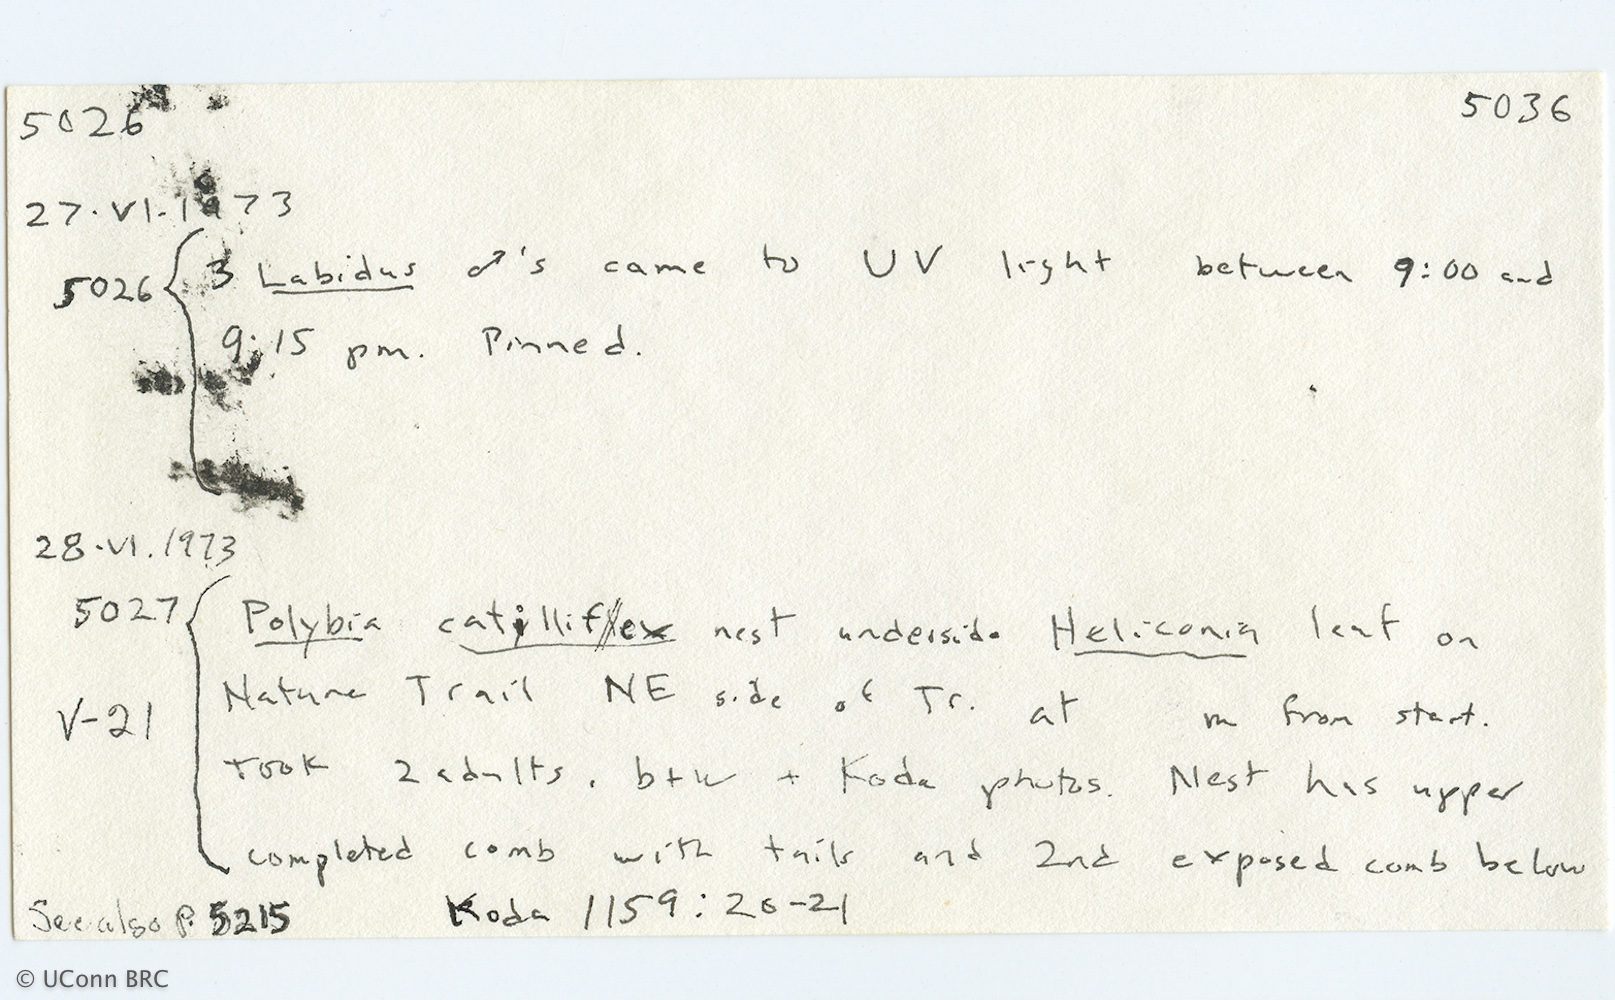 5026 5036
27.VI.1973
5026 3 Labidus ♂'s came to UV light between 9:00 and
9:15 pm. Pinned.
28.VI.1973
5027 Polybia nest underside Heliconia leaf on
Nature Trail NE side of Tr. at m from start.
V-21
Took 2 adults. b+w + Koda photos. Nest has upper
completed comb with tails and 2nd exposed comb below
See also p. 5215 Koda 1159: 20-21
© UConn BRC